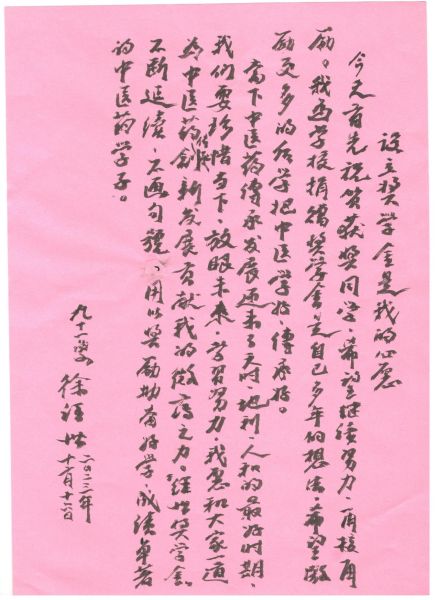 设立奖学金是我的心愿
今天首先祝贺获奖同学，希望继续努力，再接再
励。我函学校捐赠奖学金是自己多年的想法，希望激
励更多的后学把中医学好，传承好。
当下中医药传承发展迎来了天时、地利、人和的最好时期，
我们要珍惜当下，放眼未来，学习努力，我愿和大家一道
为中医药传承创新发展贡献我的微薄之力。经世奖学金
不断延续，不画句号，用以奖励勤奋好学，成绩卓著
的中医药学子。
九十一叟
徐经世
二〇二三年
十二月十六日